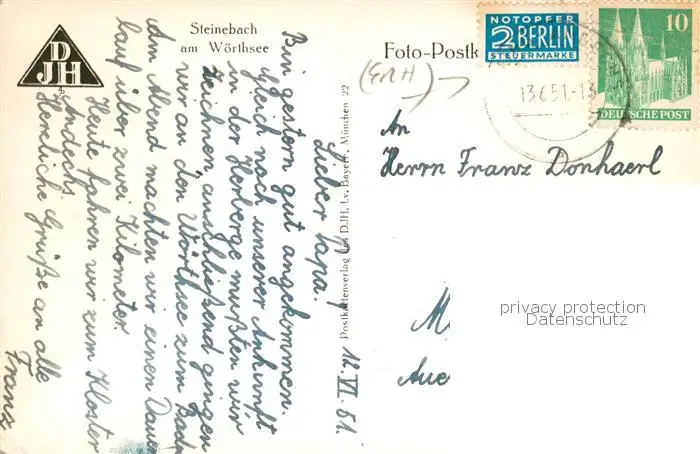 DJH
Steinebach
am Wörthsee
Foto-Postk
NOTOPFER
2 BERLIN
STEUERMARKE
10
DEUTSCHE POST
13.6.51-13
An
Herrn Franz Donhaerl
M
Aue
privacy protection
Datenschutz
Postkartenverlag des DJH, Lv. Bayern, München 22
12. VI. 51.
Lieber Papa!
Bin gestern gut angekommen.
Gleich nach unserer Ankunft
in der Herberge mußten wir
zeichnen anschließend gingen
wir an den Wörthsee zum Baden
Am Abend machten wir einen Dauer
lauf über zwei Kilometer.
Heute fahren wir zum Kloster
Andechs.
Herzliche Grüße an alle
Franz